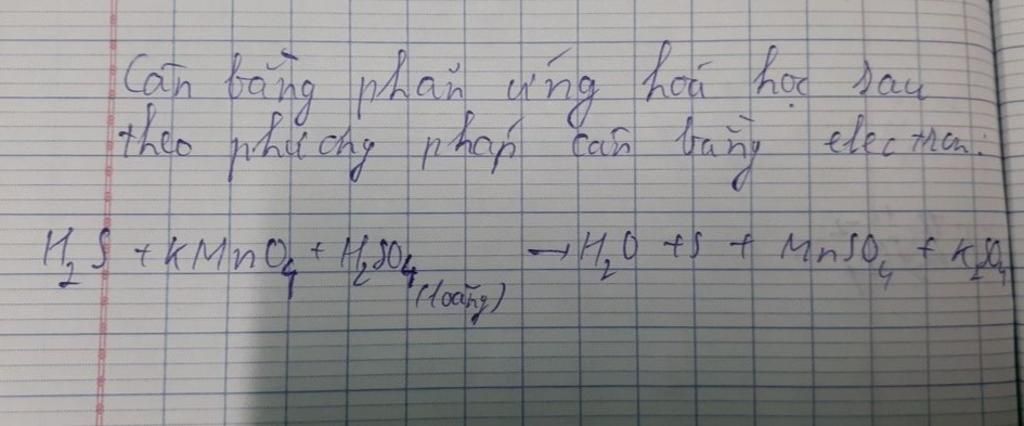 Cân bằng phản ứng hoá học sau
theo phương pháp cân bằng electron:
H₂S + KMnO₄ + H₂SO₄ (loãng) → H₂O + S + MnSO₄ + K₂SO₄